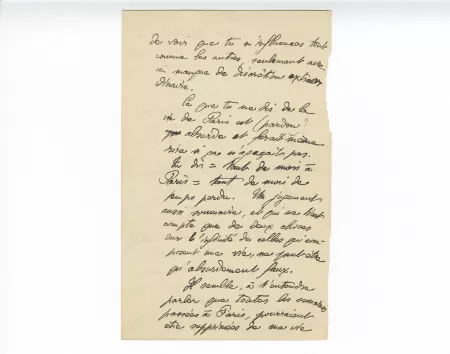 de voir que tu m'influences tout
comme les autres, seulement avec
un manque de discrétion extraor
dinaire.
Ce que tu me dis de la
vie de Paris est (pardon!)
absurde et ferait même
rire si ne n'agaçait pas.
Tu dis = tant de mois à
Paris = tant de mois de
temps perdu. Un jugement
aussi sommaire, et qui ne tient
compte que de deux choses
sur l'infinité de celles qui com-
posent ma vie, ne peut être
qu'absurdement faux.
Il semble, à t'entendre
parler que toutes les semaines
passées à Paris, pourraient
être supprimées de ma vie